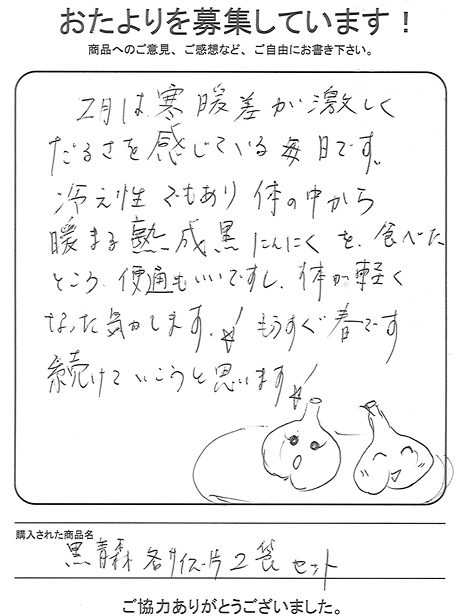 おたよりを募集しています！
商品へのご意見、ご感想など、ご自由にお書き下さい。
2月は寒暖差が激しく
だるさを感じている毎日です。
冷え性でもあり体の中から
暖まる熟成黒にんにくを、食べた
ところ、便通もいいですし、体が軽く
なった気がします。もうすぐ春です
続けていこうと思います
購入された商品名
黒青森 各サイズ一片 2袋セット
ご協力ありがとうございました。